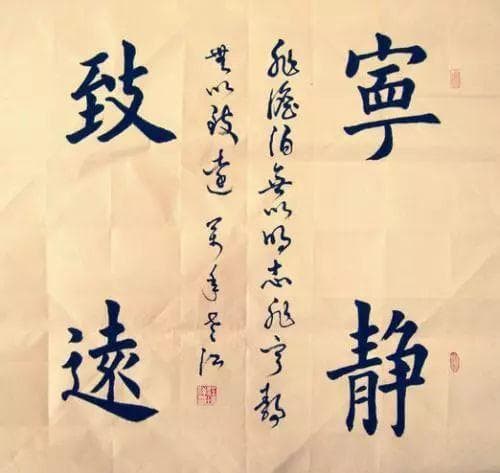 寧静
致遠
非澹泊無以明志非寧靜
無以致遠